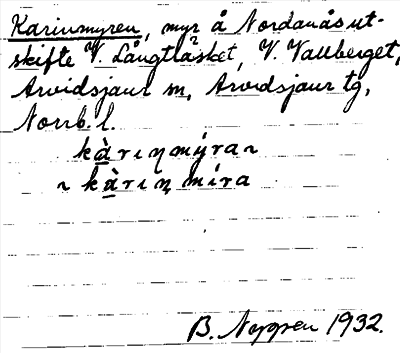 Karinmyren, myr å Nordanås ut-
skifte V. Långträsket, V. Vallberget,
Arvidsjaur sn, Arvidsjaur tg,
Norrb. l.
kàrıƞmýra ~
~ kàrıƞ míra
B. Norgren 1932.